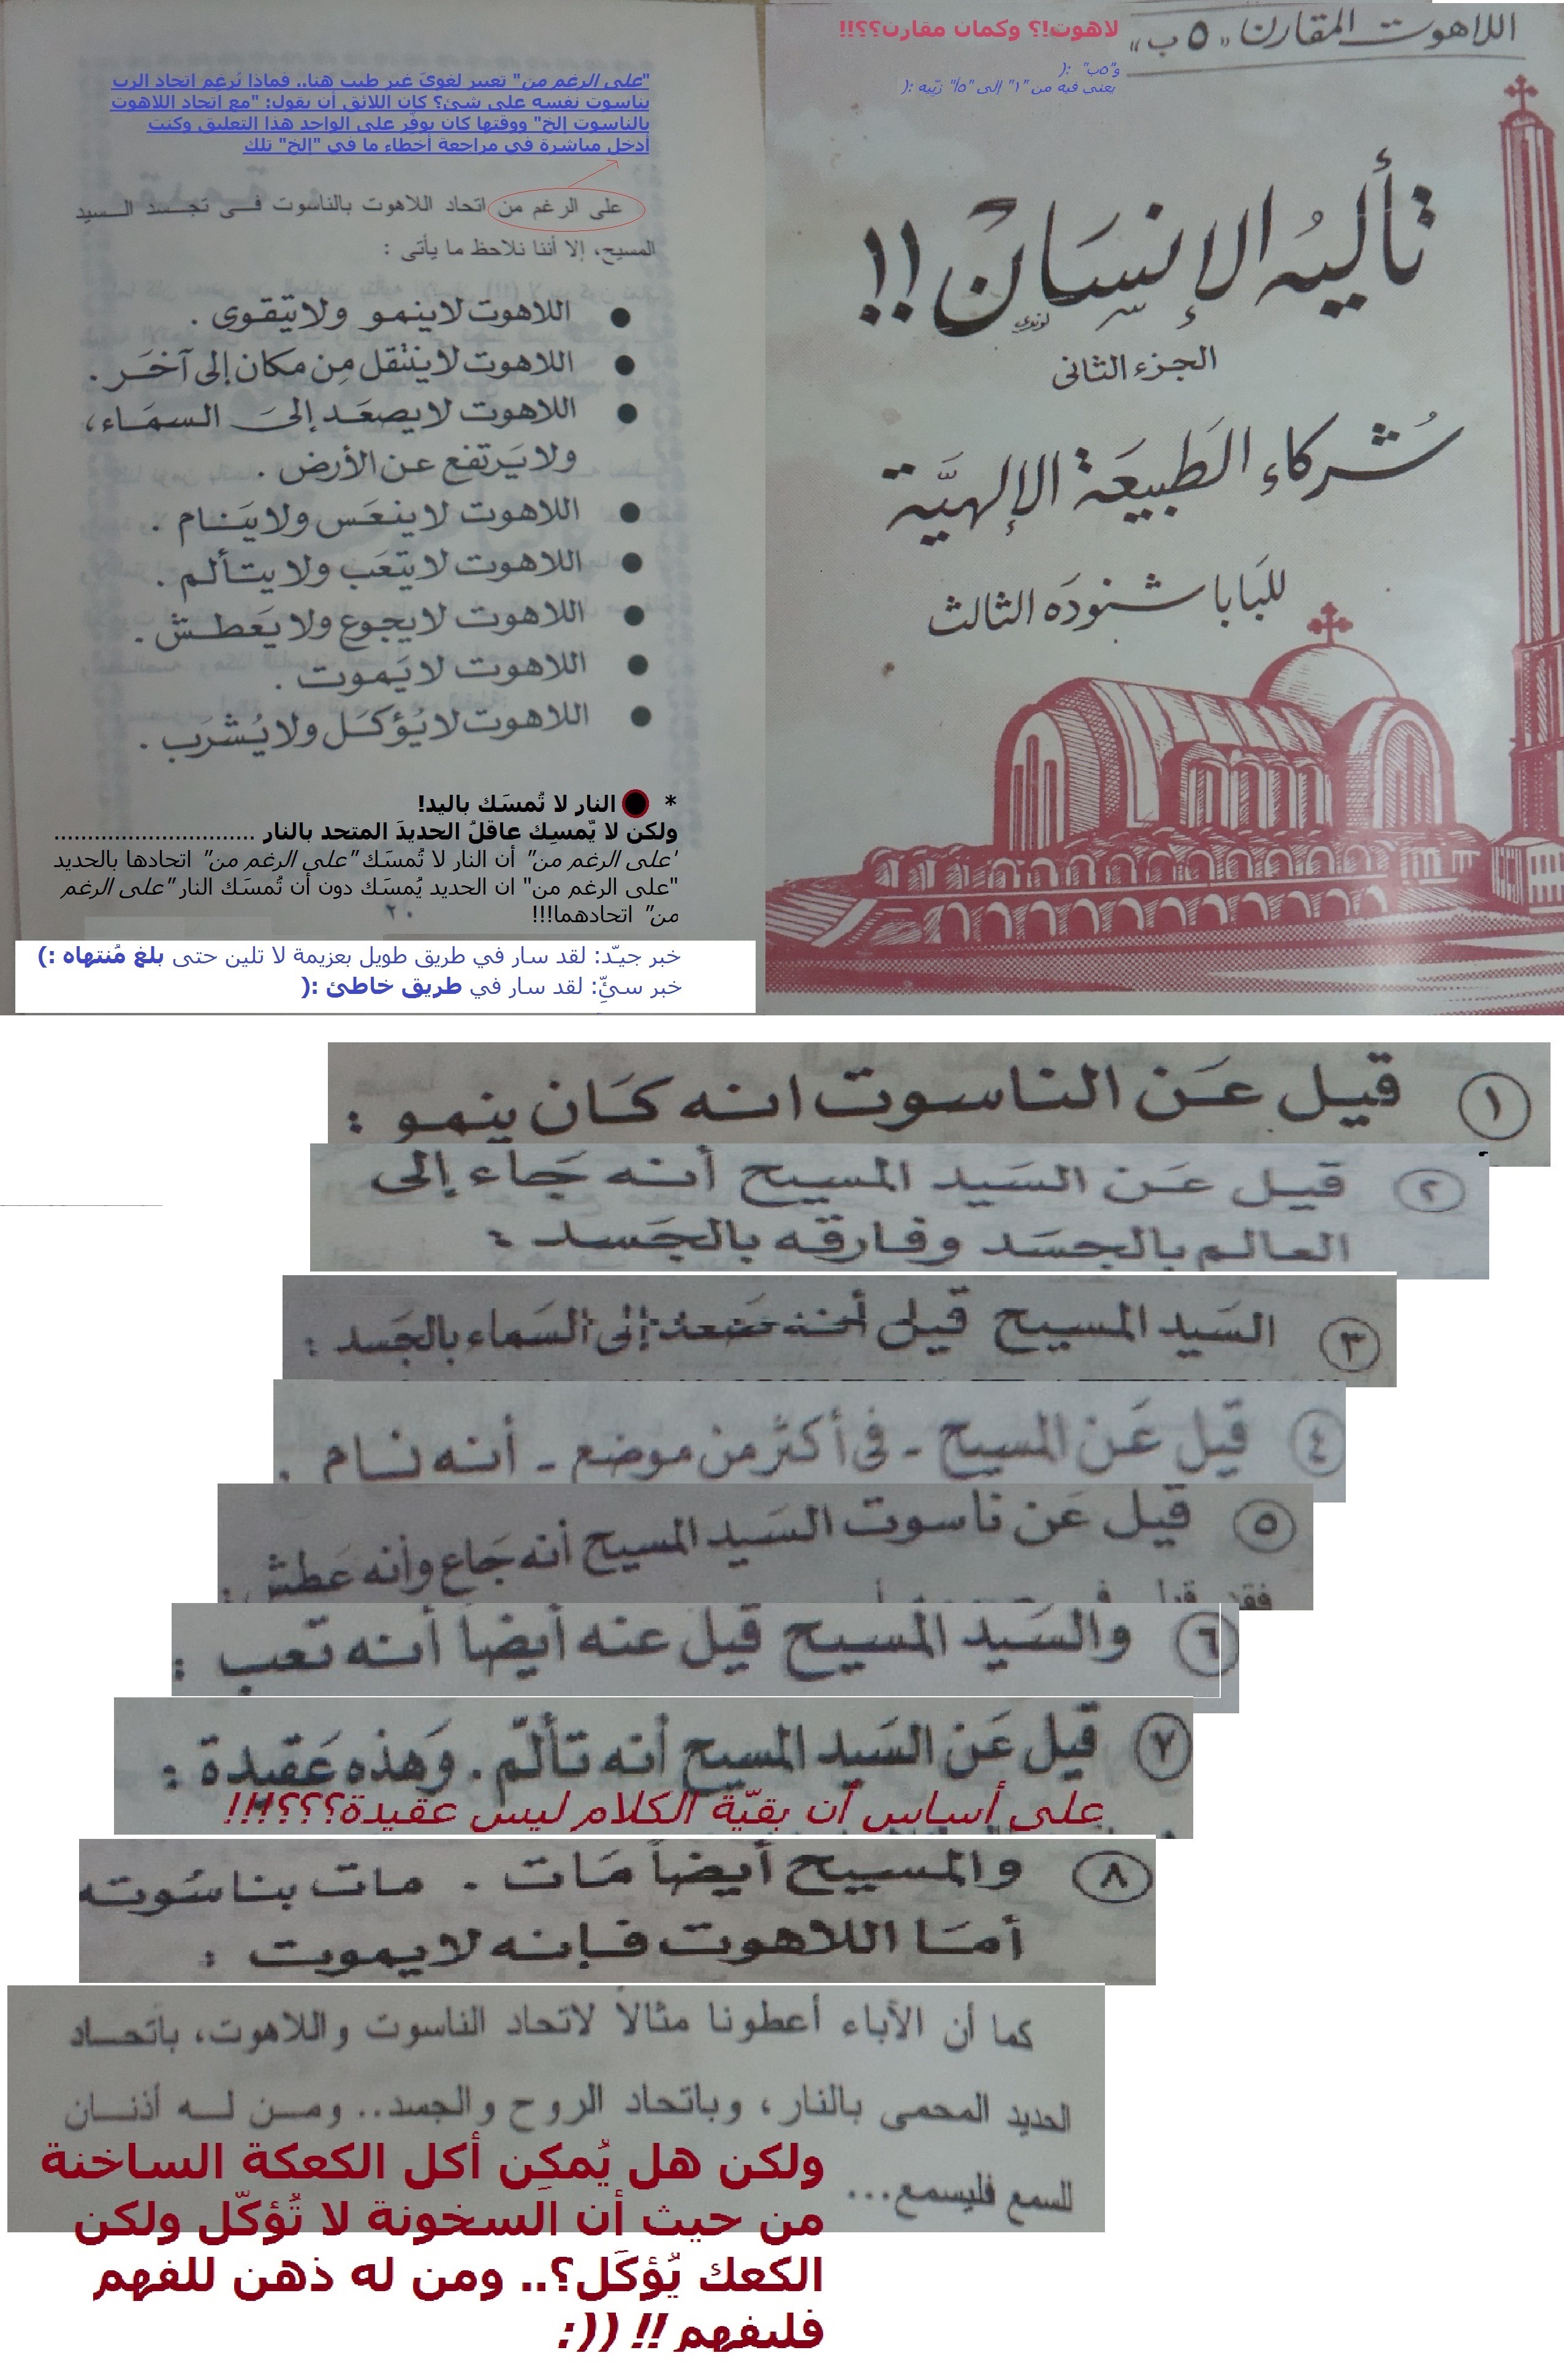 اللاهوت المقارن «٥ ب»
لاهوت!؟ وكمان مقارن؟؟!!
و"٥ب" :(
يعني فيه من "١" إلى "٥أ" زيّيه :(
تأليه الإنسان !!
الجزء الثانى
شركاء الطبيعة الإلهية
للبابا شنوده الثالث
"على الرغم من" تعبير لغويّ غير طيب هنا.. فماذا يُرغم اتحاد الرب
بناسوت نفسه على شئ؟ كان اللائق أن يقول: "مع اتحاد اللاهوت
بالناسوت إلخ" ووقتها كان يوفّر على الواحد هذا التعليق وكنت
أدخل مباشرة في مراجعة أخطاء ما في "إلخ" تلك
على الرغم من اتحاد اللاهوت بالناسوت فى تجسد السيد
المسيح، إلا أننا نلاحظ ما يأتى :
● اللاهوت لاينمو ولايتقوى .
● اللاهوت لاينتقل من مكان إلى آخر .
● اللاهوت لايصعد إلى السماء،
ولايرتفع عن الأرض .
● اللاهوت لاينعس ولاينام .
● اللاهوت لايتعب ولايتألم .
● اللاهوت لايجوع ولايعطش .
● اللاهوت لايموت .
● اللاهوت لايؤكل ولايشرب .
* ● النار لا تُمسَك باليد!
ولكن لا يٌمسِك عاقلُ الحديدَ المتحد بالنار ..............................
'على الرغم من" أن النار لا تُمسَك "على الرغم من" اتحادها بالحديد
"على الرغم من" ان الحديد يُمسَك دون أن تُمسَك النار "على الرغم
من" اتحادهما!!!
٢٠
خبر جيّد: لقد سار في طريق طويل بعزيمة لا تلين حتى بلغ مُنتهاه :)
خبر سئِّ: لقد سار في طريق خاطئ :(
١ قيل عن الناسوت انه كان ينمو :
٢ قيل عن السيد المسيح أنه جاء إلى
العالم بالجسد وفارقه بالجسد :
٣ السيد المسيح قيل أنه صعد إلى السماء بالجسد :
٤ قيل عن المسيح - فى أكثر من موضع - أنه نام .
٥ قيل عن ناسوت السيد المسيح أنه جاع وأنه عطش :
٦ والسيد المسيح قيل عنه أيضاً أنه تعب :
٧ قيل عن السيد المسيح أنه تألّم . وهذه عقيدة :
على أساس أن بقيّة الكلام ليس عقيدة؟؟؟!!!
٨ والمسيح أيضاً مات . مات بناسوته
أما اللاهوت فإنه لايموت :
كما أن الآباء أعطونا مثالاً لاتحاد الناسوت واللاهوت، باتحاد
الحديد المحمى بالنار، وباتحاد الروح والجسد.. ومن له أذنان
للسمع فليسمع...
ولكن هل يُمكِن أكل الكعكة الساخنة
من حيث أن السخونة لا تُؤكّل ولكن
الكعك يُؤكَل؟.. ومن له ذهن للفهم
فليفهم !! ((: